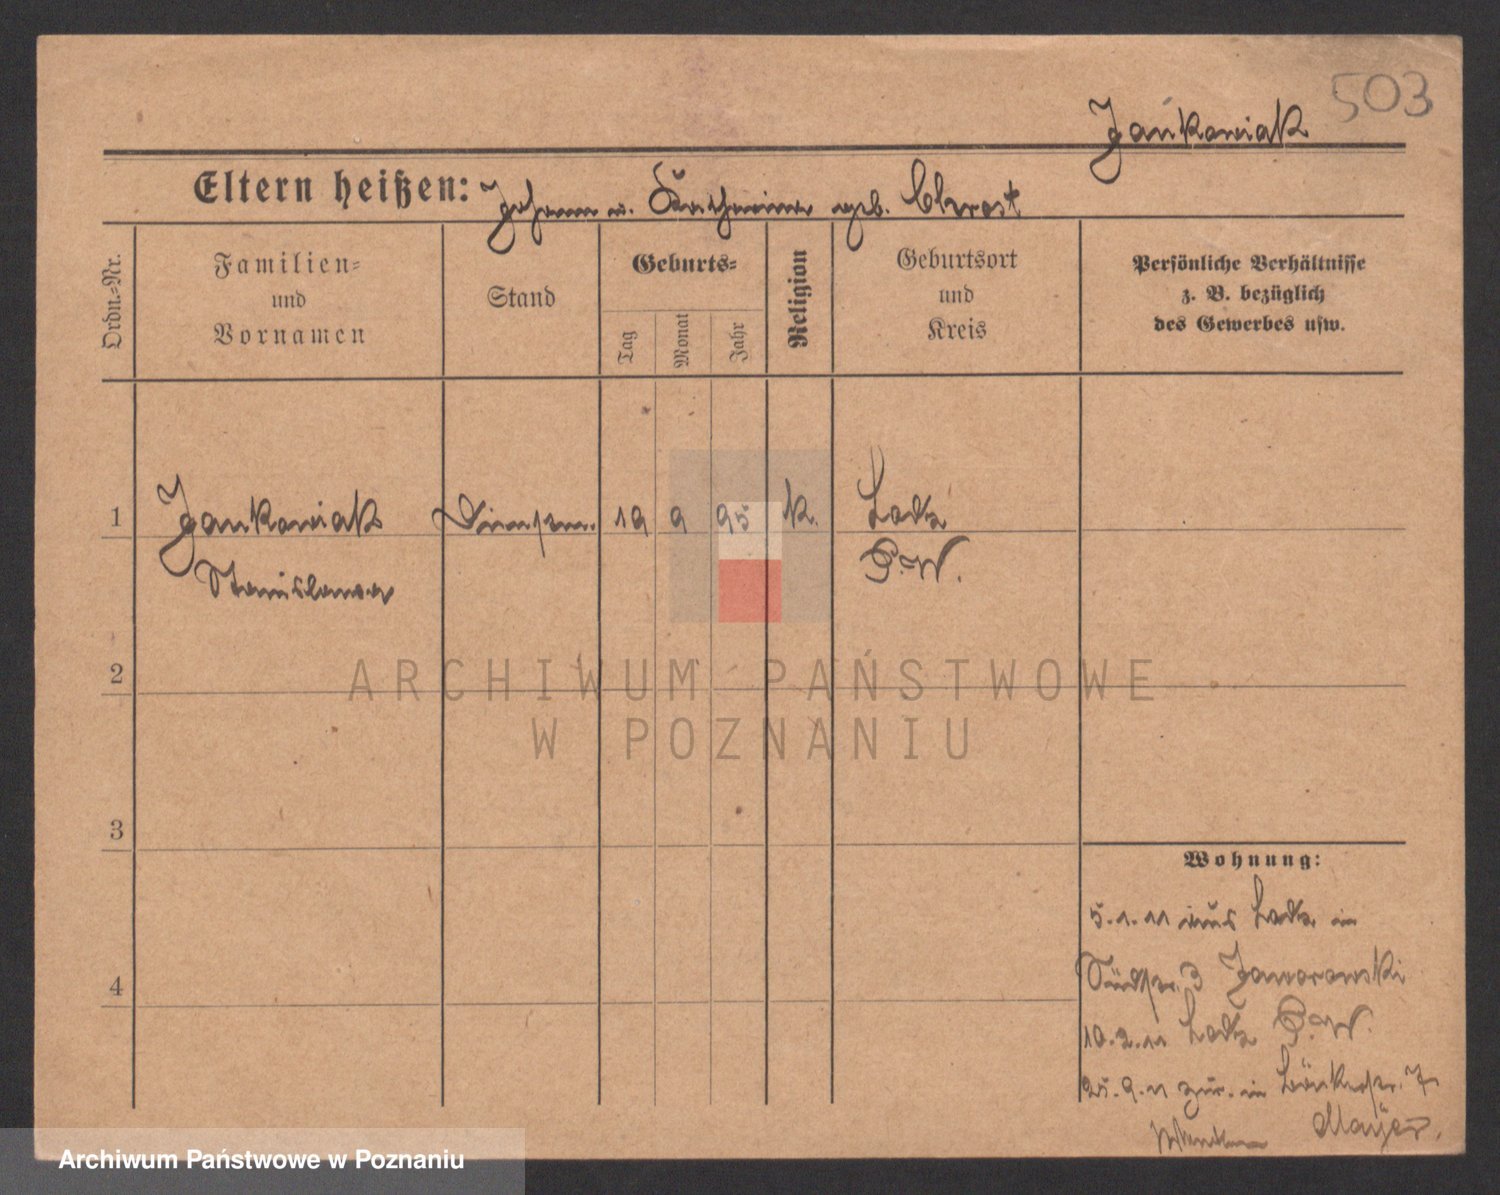 503
Jankowiak
Eltern heißen: Johann u. Katharina geb. Chrost
Ordn.-Nr.
Familien-
und
Vornamen
Stand
Geburts-
Tag
Monat
Jahr
Religion
Geburtsort
und
Kreis
Persönliche Verhältnisse
z. B. bezüglich
des Gewerbes usw.
1
Jankowiak
Stanislawa
19 9 95 k.
P.-W.
2
3
4
Wohnung:
5.1.11 aus in
Südstr. 3 Jaworowski
10.2.11 P.-W.
25.9.11 zur. in 7
Mayer.
ARCHIWUM PAŃSTWOWE
W POZNANIU
Archiwum Państwowe w Poznaniu